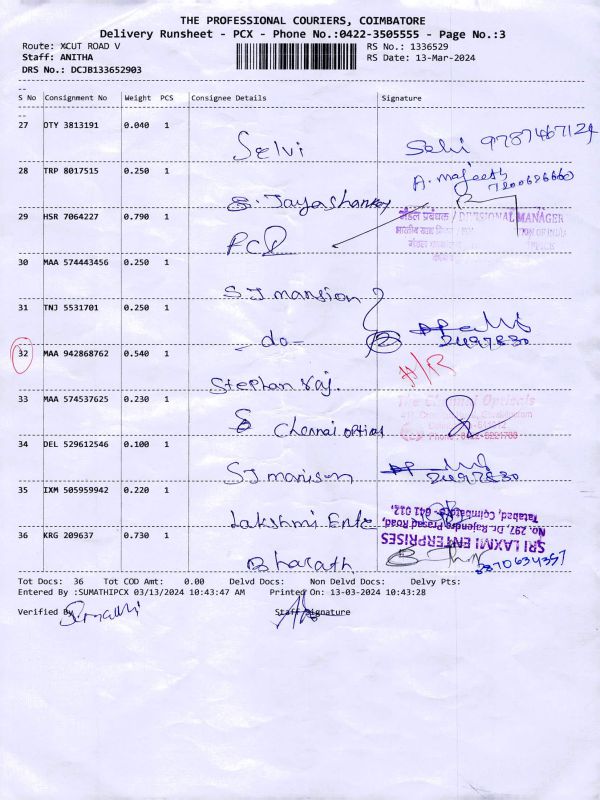 THE PROFESSIONAL COURIERS, COIMBATORE
Delivery Runsheet - PCX - Phone No.:0422-3505555 - Page No.:3
Route: XCUT ROAD V RS No.: 1336529
Staff: ANITHA RS Date: 13-Mar-2024
DRS No.: DCJB133652903
S No Consignment No Weight PCS Consignee Details Signature
27 OTY 3813191 0.040 1
Selvi Selvi
28 TRP 8017515 0.250 1 A. majeeth
S. Jayashankar 7200686660
29 HSR 7064227 0.790 1 मंडल प्रबंधक / DIVISIONAL MANAGER
FCI
30 MAA 574443456 0.250 1
SJ mansion
31 TNJ 5531701 0.250 1
- do - 2497830
32 MAA 942868762 0.540 1 H/R
Stephan raj.
33 MAA 574537625 0.230 1 The Chennai Opticals
Chennai optical
34 DEL 529612546 0.100 1
SJ manison 2497830
35 IXM 505959942 0.220 1
Lakshmi Ente
No. 297, Dr. Rajendra Prasad Road,
Tatabad, Coimbatore - 641 012.
SRI LAXMI ENTERPRISES
36 KRG 209637 0.730 1
Bharath
Tot Docs: 36 Tot COD Amt: 0.00 Delvd Docs: Non Delvd Docs: Delvy Pts:
Entered By :SUMATHIPCX 03/13/2024 10:43:47 AM Printed On: 13-03-2024 10:43:28
Verified By Staff Signature